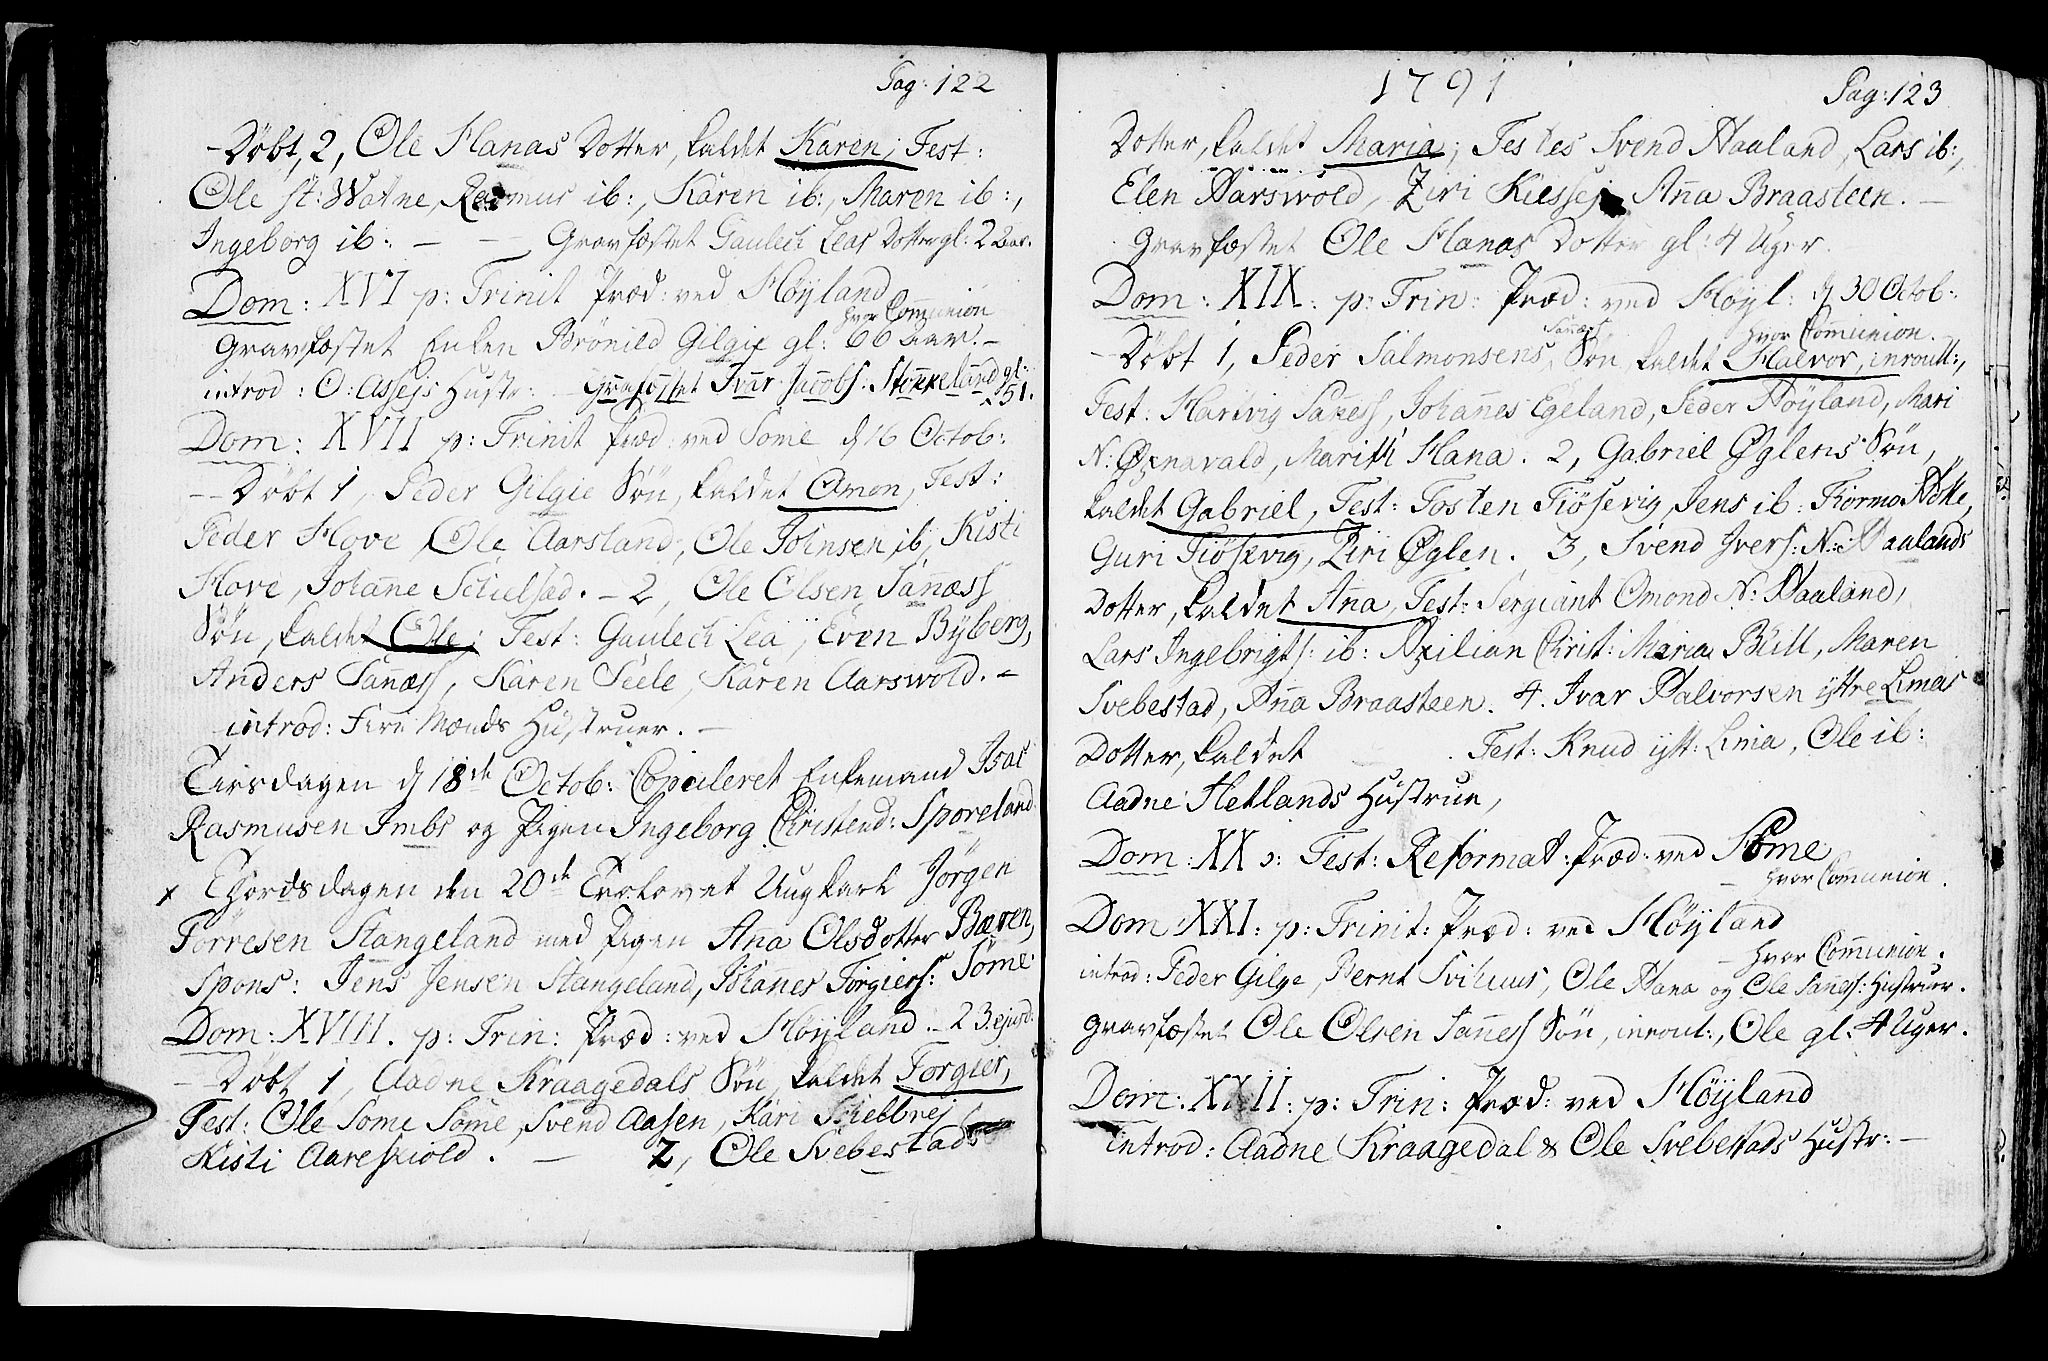 Pag: 122
Döbt, 2, Ole Hanas Dotter, kaldet Karen; Test:
Ole st: Watne, Rasmus ib:, Karen ib:, Maren ib:,
Ingeborg ib: — — Gravfæstet Gaulech Leas Dotter gl: 2 Aar.
Dom: XVI p: Trinit Præd: ved Höyland
hvor Com̄union
Gravfæstet Enken Brönild Gilgie gl: 66 Aar. —
introd: O: Assejs Hustr: Gravfæstet Ivar Jacobs: Stokkeland gl:
51.
Dom: XVII p: Trinit Præd: ved Some d 16 Octob:
— Döbt 1, Peder Gilgie Sön, kaldet Omon, Test:
Peder Hove, Ole Aarsland, Ole Johnsen ib:, Kisti
Hove, Johan̄e Schelsed. — 2, Ole Olsen San̄æss
Sön, kaldet Ole; Test: Gaulech Lea, Even Byberg,
Anders San̄æss, Karen Seele, Karen Aarswold. —
introd: Fire Mænds Hustruer. —
Tirsdagen d 18de Octob: Copuleret Enkemand Isac
Rasmusen Imbs og Pigen Ingeborg Christend: Sporeland
x Thorsdagen den 20de Trolovet Ungkarl Jörgen
Törresen Stangeland med Pigen An̄a Olsdotter Bæren,
Spons: Jens Jensen Stangeland, Johan̄es Torgiers: Some
Dom: XVIII. p: Trin: Præd: ved Höyland — 23 ejusd:
— Döbt 1, Aadne Kraagedals Sön, kaldet Torgier,
Test: Ole Some Some, Svend Aasen, Kari Skiellvej
Kisti Aareskiold. — 2, Ole Svebestads
1791
Pag: 123
Dotter, kaldet Maria; Testes Svend Haaland, Lars ib:,
Elen Harswold, Ziri Kiessej An̄a Braasteen. —
Gravfæstet Ole Hanas Dotter gl: 4 Uger.
Dom: XIX. p: Trin: Præd: ved Höyl: d 30 Octob:
hvor Com̄union.
— Döbt 1, Peder Salmonsens San̄æss Sön kaldet Halvor, inroull:,
Test: Hartvig San̄ess, Johan̄es Egeland, Peder Höyland, Mari
N: Øxnavald, Marith Hana. 2, Gabriel Øglens Sön,
kaldet Gabriel, Test: Tosten Tiösevig, Jens ib: Tormo Holle,
Guri Tiösevig, Ziri Øglen. 3, Svend Ivers: N: Haalands
Dotter, kaldet An̄a, Test: Sergiant Omond N: Haaland,
Lars Ingebrigts: ib: Axilian Christ: Maria Bull, Maren
Svebestad, An̄a Braasteen. 4. Ivar Halvorsen yttre Limas
Dotter, kaldet . Test: Knud ytt: Lima, Ole ib:
Aadne Hetlands Hustrue,
Dom: XX : Fest: Reformat: Præd: ved Some
— hvor Com̄union.
Dom XXI: p: Trinit: Præd: ved Höyland
— hvor Com̄union.
introd: Peder Gilge, Bernt Svihuus, Ole Hana og Ole San̄ess: Hustruer.
Gravfæstet Ole Olsen San̄ess Sön, inroul:, Ole gl: 4 Uger.
Dom: XXII: p: Trin: Præd: ved Höyland
introd: Aadne Kraagedal & Ole Svebestads Hustr: —